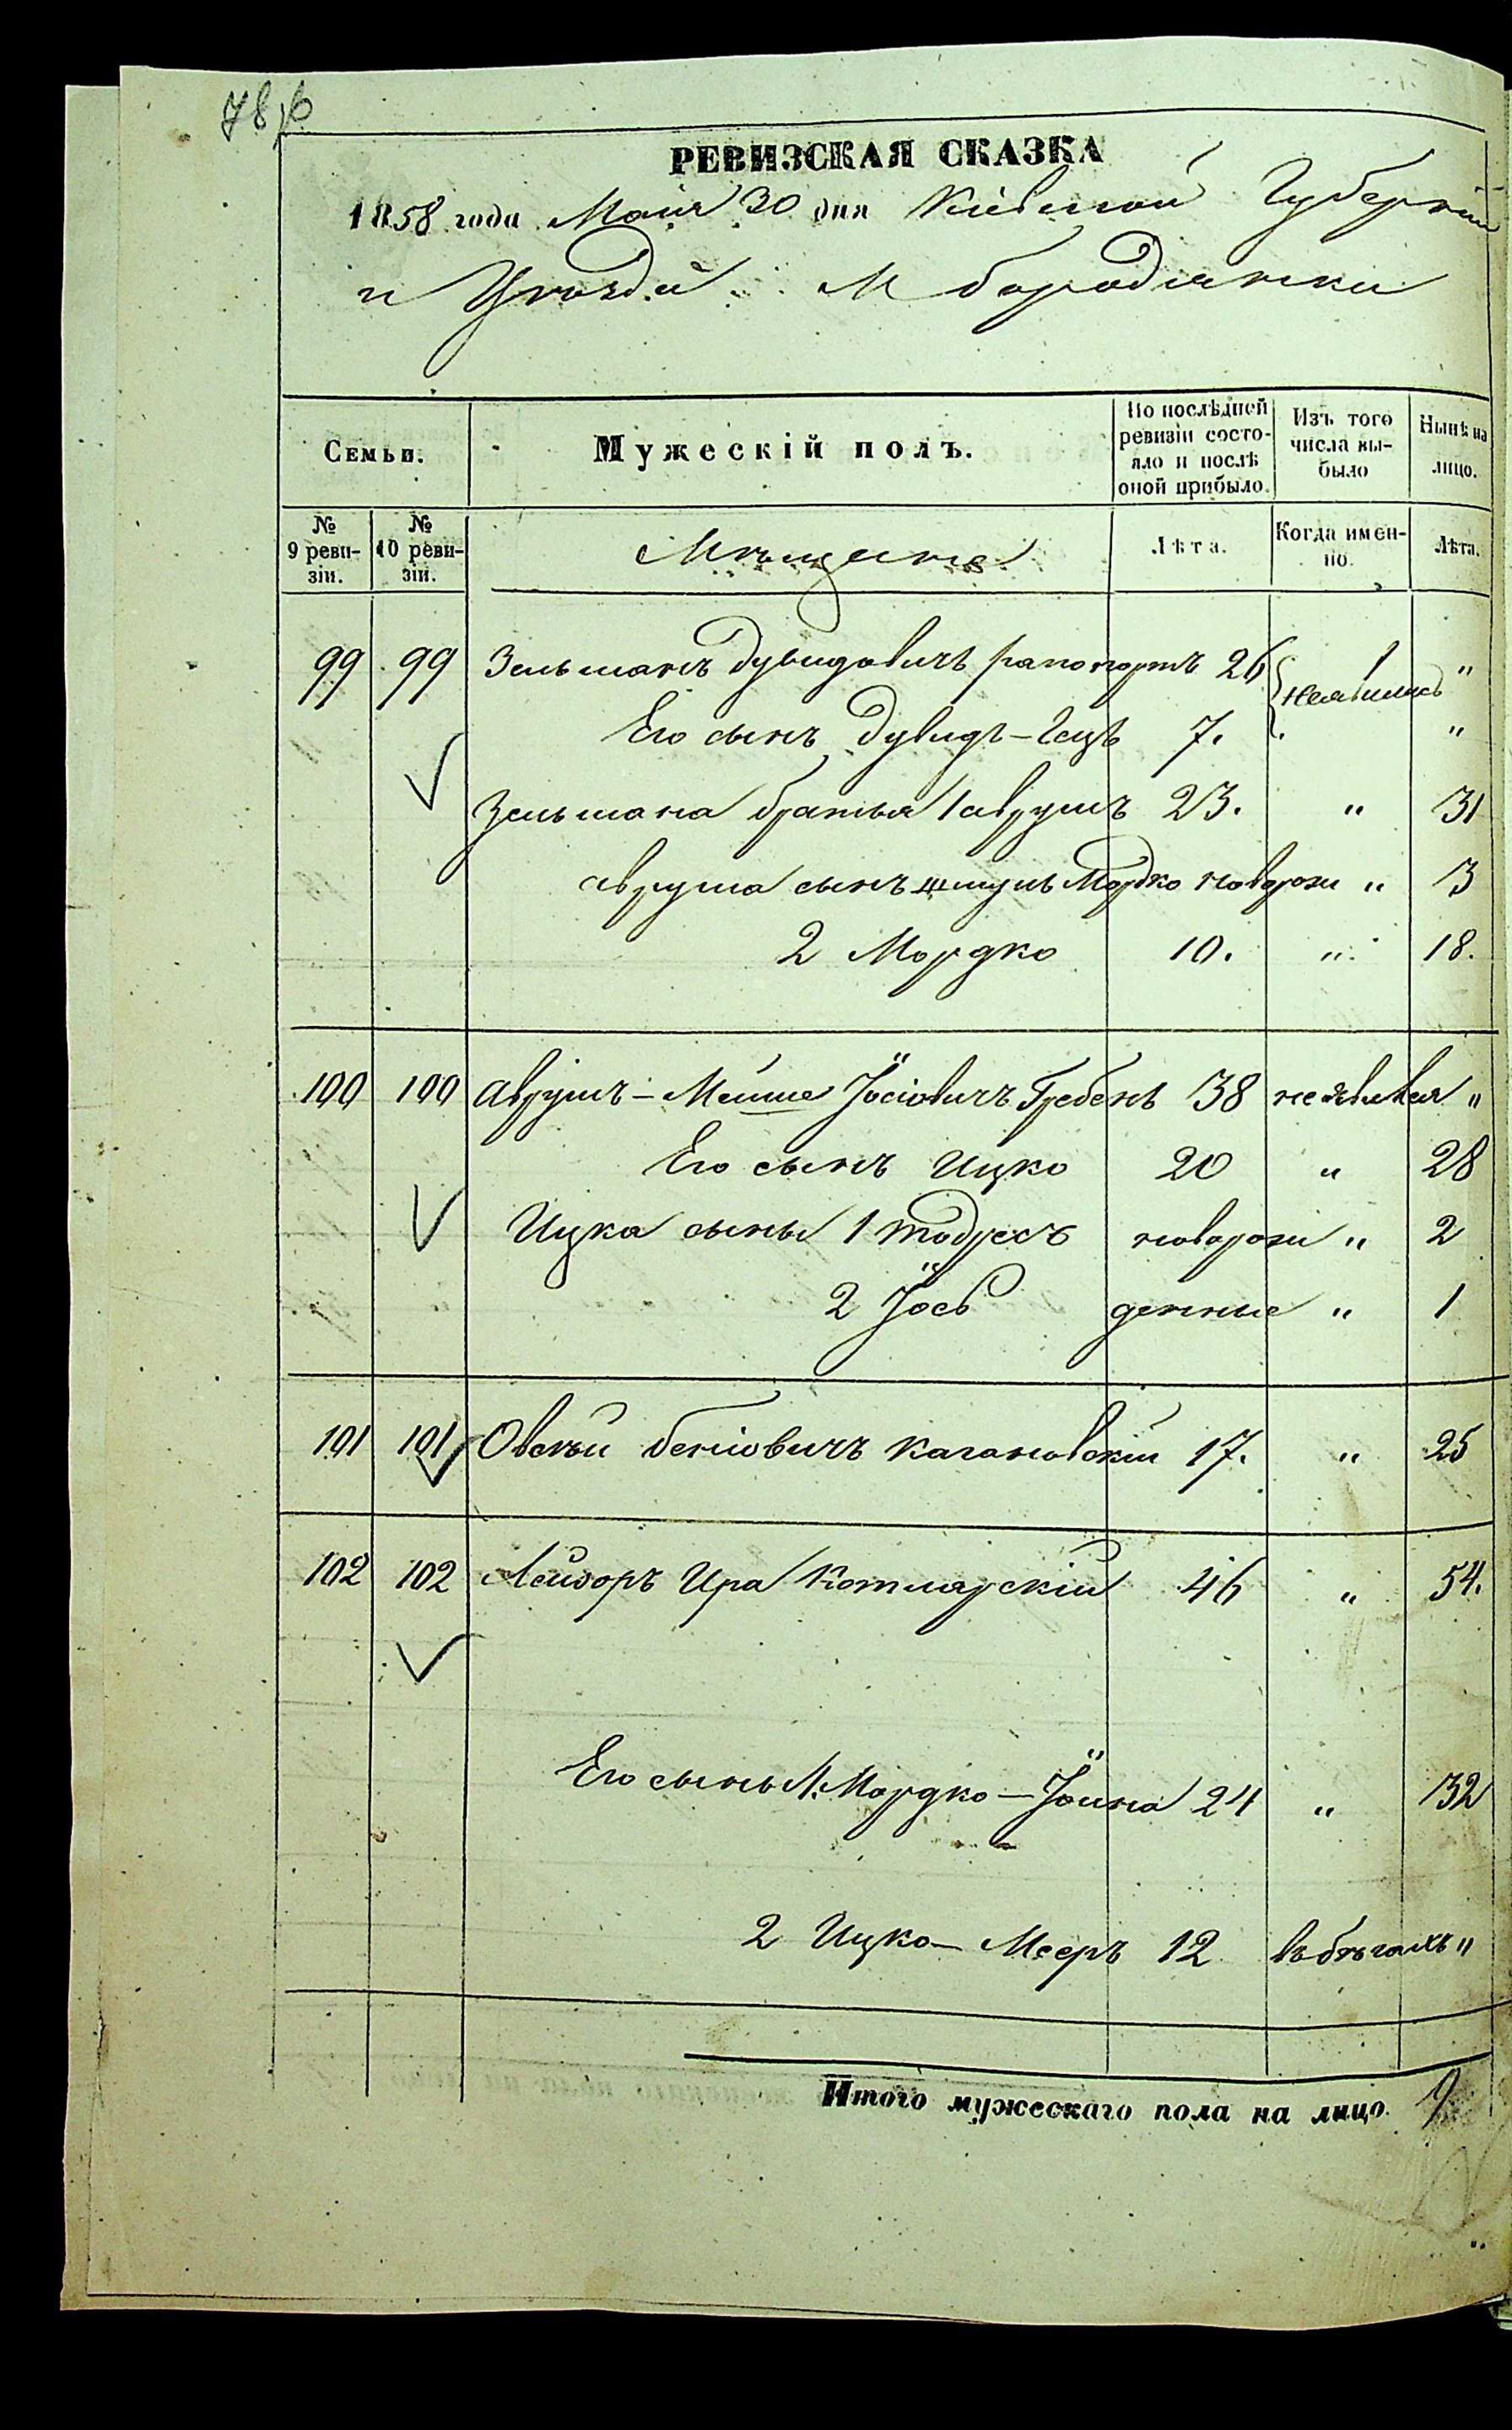 РЕВИЗСКАЯ СКАЗКА
1858 года Маія 30 дня Кіевской Губерніи
и Уѣзда М бородянки
Семьи. Мужескій полъ. По послѣдней ревизіи состояло и послѣ оной прибыло. Изъ того числа выбыло Нынѣ на лицо.
№ 9 ревизіи. № 10 ревизіи. Мѣщане Лѣта. Когда именно. Лѣта.
99 99 Зельманъ Дувидовичъ рапопортъ 26 неявились "
Его сынъ Дувидъ-Гецъ 7. "
Зельмана братья 1 аврумъ 23. " 31
аврума сынъ шмуль Мордко новорож " 3
2 Мордко 10. " 18.
100 100 аврумъ-Мойше Іосіовичъ Гребень 38 неявился "
Его сынъ Ицко 20 " 28
Ицка сыны 1 тодресъ новорож " 2
2 Іось денные " 1
101 101 Овсѣй беніовичъ кагановскій 17. " 25
102 102 Лейзоръ Ира Котлярскій 46 " 54.
Его сыны 1. Мордко-Іойна 24 " 32
2 Ицко-Мееръ 12 въ бѣгахъ "
Итого мужескаго пола на лицо. 9.